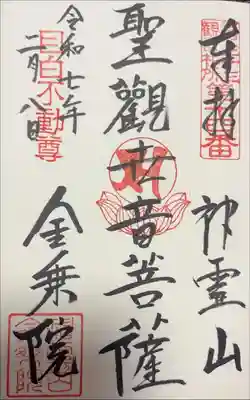 奉拝
神霊山
聖觀世音菩薩
令和七年
二月八日
目白不動尊
金乗院